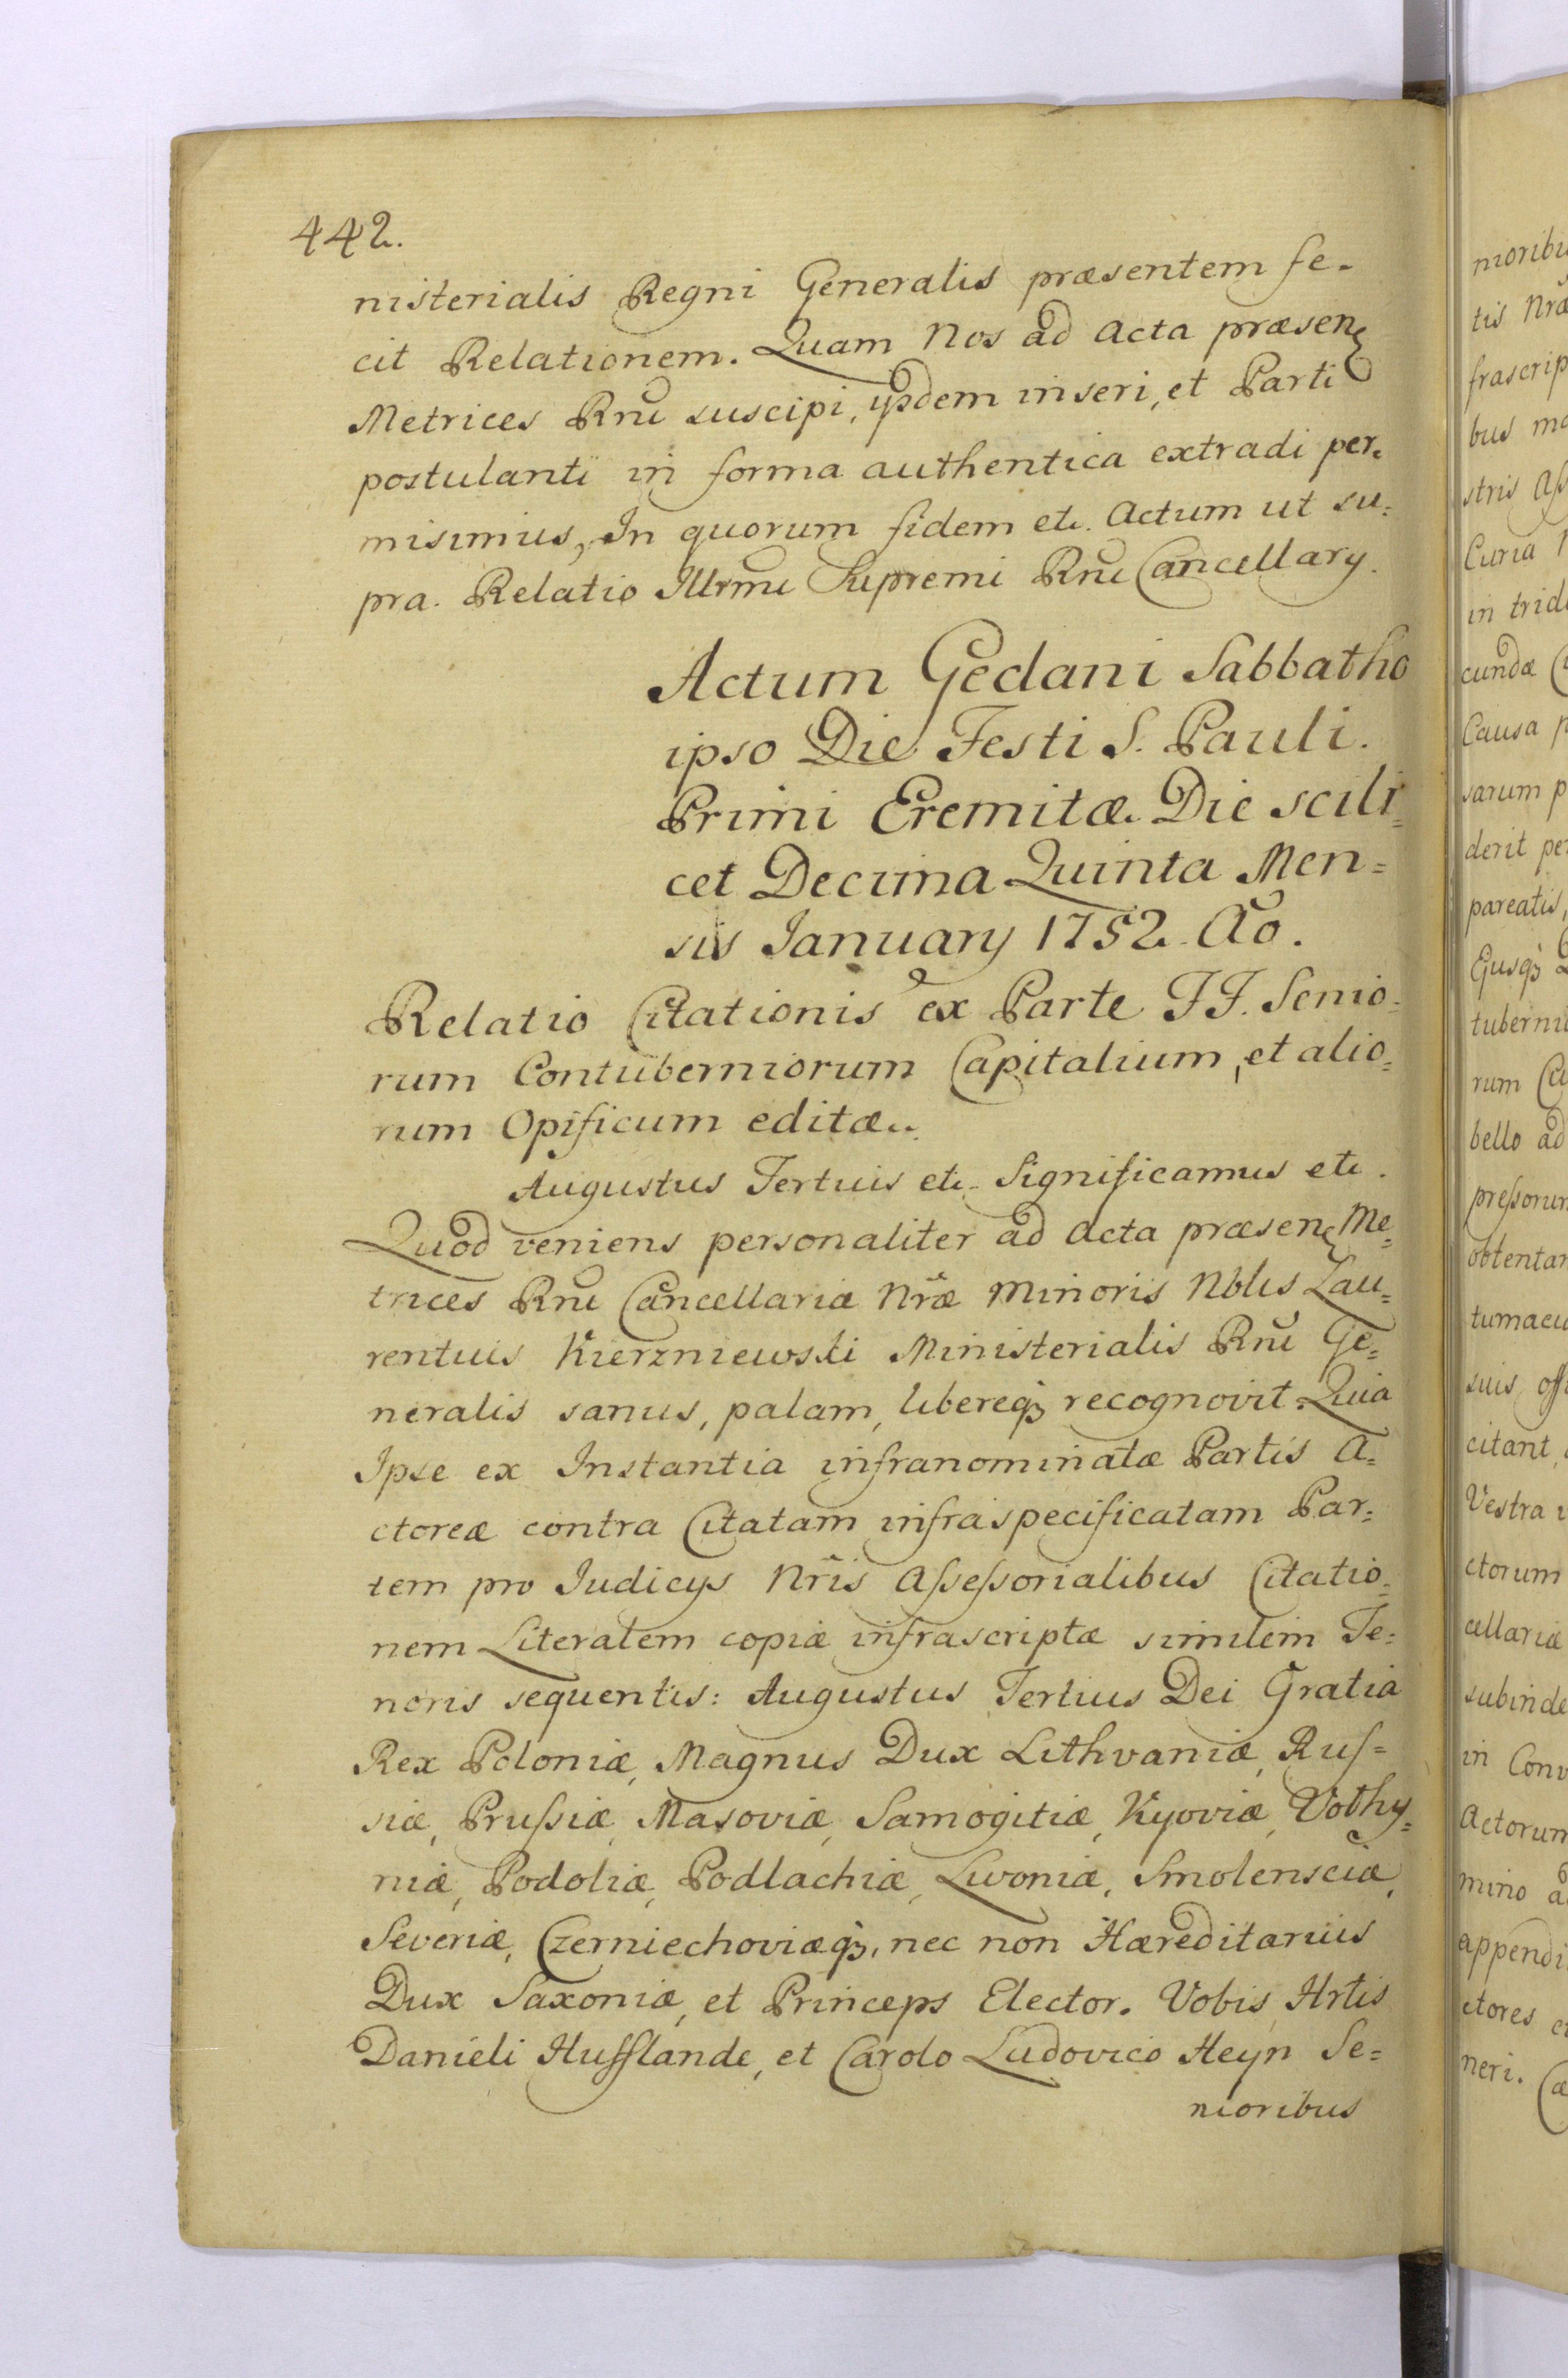 442.
nisterialis Regni Generalis præsentem fe-
cit Relationem. Quam Nos ad Acta præsen
Metrices Rni suscipi, ysdem inseri, et Parti
postulanti in forma authentica extradi per-
misimus, In quorum fidem etc. Actum ut su=
pra. Relatio Illrmi Supremi Rni Cancellary.
Actum Gedani Sabbatho
ipso Die Festi S. Pauli.
Primi Eremitæ. Die scili=
cet Decima Quinta Men=
sis January 1752. Ao.
Relatio Citationis ex Parte FF. Senio=
rum Contuberniorum Capitalium, et alio=
rum Opificum editæ.
Augustus Tertius etc. Significamus etc.
Quod veniens personaliter ad Acta præsen Me=
trices Rni Cancellariæ Nræ Minoris Nblis Lau=
rentius Kierzniewski Ministerialis Rni Ge=
neralis sanus, palam, libereq3 recognovit. Quia
Ipse ex Instantia infranominatæ Partis A=
ctoreæ contra Citatam infraspecificatam Par=
tem pro Judicys Nris Assessorialibus Citatio=
nem Literalem copiæ infrascriptæ similem Te=
noris sequentis: Augustus Tertius Dei Gratia
Rex Poloniæ, Magnus Dux Lithvaniæ, Rus=
siæ, Prussiæ, Masoviæ, Samogitiæ, Kyoviæ, Volhy=
niæ, Podoliæ, Podlachiæ, Livoniæ, Smolensciæ,
Severiæ, Czerniechoviæq3, nec non Hæreditarius
Dux Saxoniæ, et Princeps Elector. Vobis, Hrtis
Danieli Hufflande, et Carolo Ludovico Heyn Se=
nioribus
tis Nræ
bus
stris
Curia
in
cundæ
Causa
sarum
derit
pareatis,
Ejusq3
rum
bello ad
suis
citant
Vestra
ctorum
cellariæ
subinde
in
mino
ctores
neri.